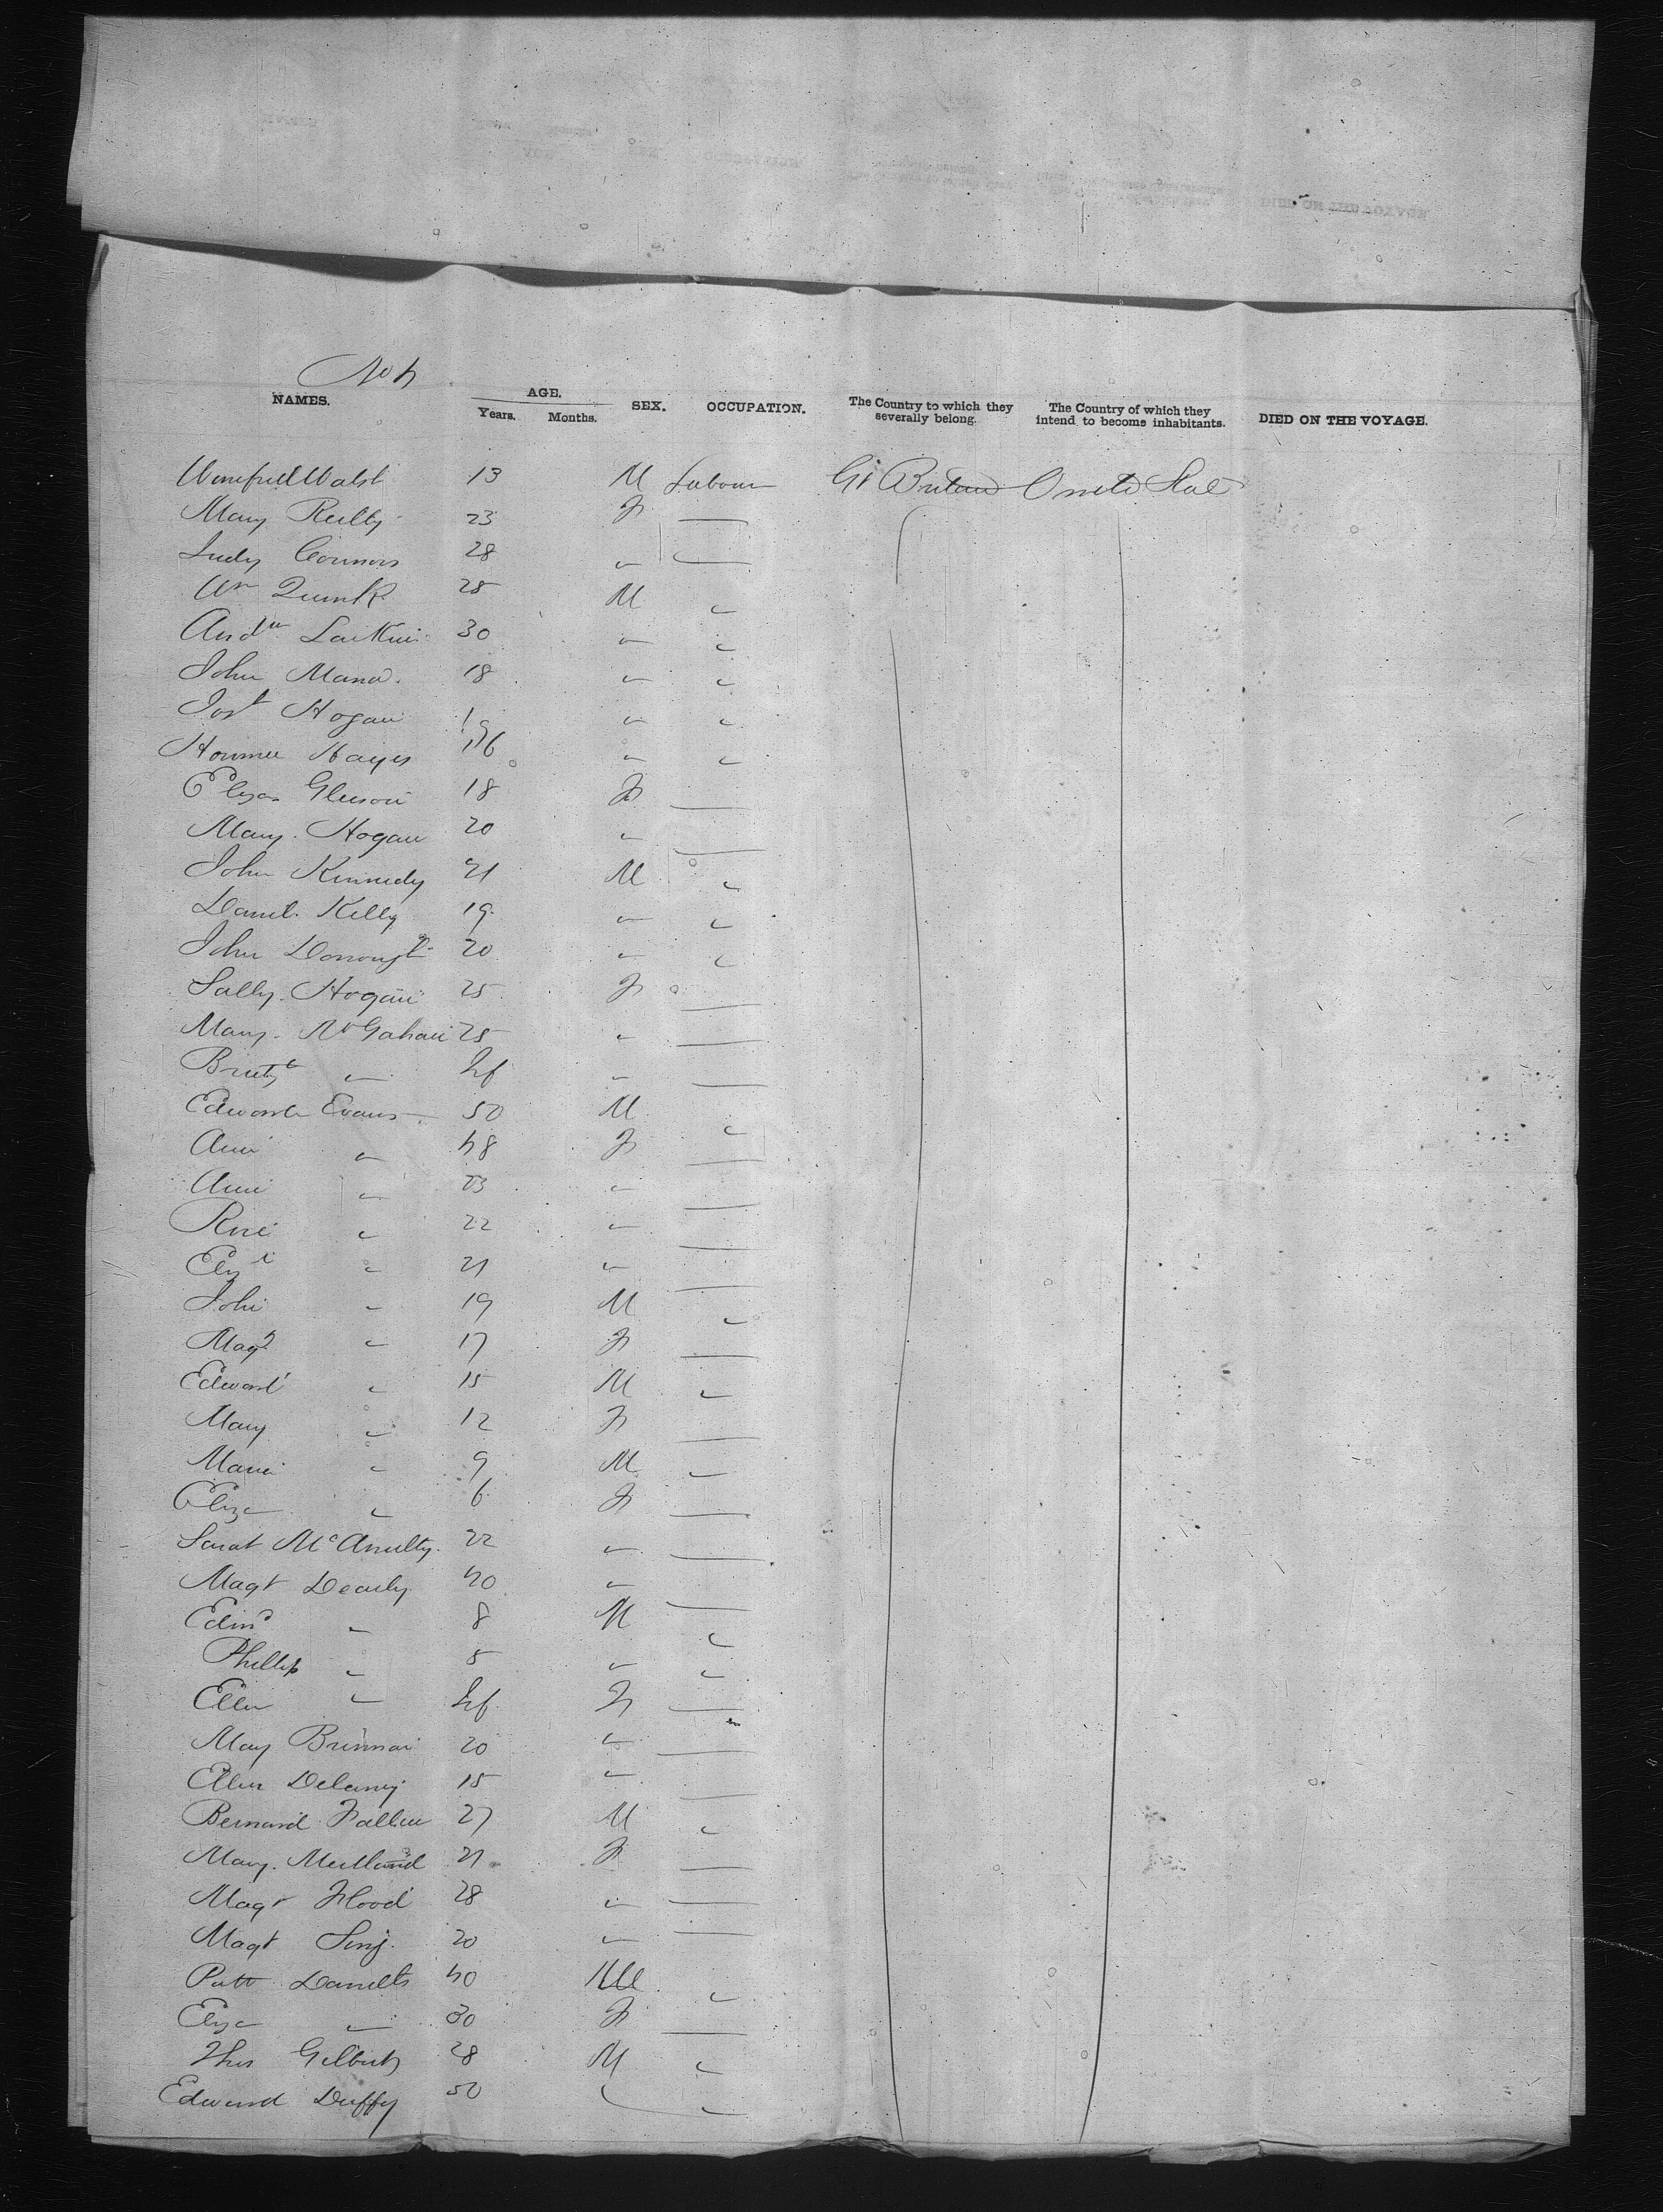 No 4
NAMES. AGE. Years. Months. SEX. OCCUPATION. The Country to which they severally belong. The Country of which they intend to become inhabitants. DIED ON THE VOYAGE.
Winefred Walsh 13 M Labour Gt Britain United Stat
Mary Reilly 23 F
Judy Connors 28 "
Wm Quirk 28 M "
Andw Larkin 30 " "
John Mara 18 " "
Hogan 19 " "
Hayes 16 " "
Eliza Gleeson 18 F
Mary Hogan 20 "
John Kennedy 21 M "
Danl. Kelly 19 " "
John 20 " "
Sally Hogan 25 F
Mary McGahan 25 "
Bridgt " Inf "
Edward Evans 50 M "
Ann " 48 F
Ann " 23 "
Rose " 22 "
" 21 "
John " 19 M "
Magt " 17 F
Edward " 15 M "
Mary " 12 F
" 9 M "
Eliza " 6 F
Sarah McAnulty 22 "
Magt 40 "
Edmd " 8 M "
Phillip " 5 " "
Ellen " Inf F
Mary Brennan 20 "
Ellen Delany 15 "
Bernard Fallon 27 M "
Mary 21 F
Magt Flood 28 "
Magt 20 "
Patt 40 M "
Eliza " 30 F
Thos Gilbert 28 M "
Edward Duffy 50 "